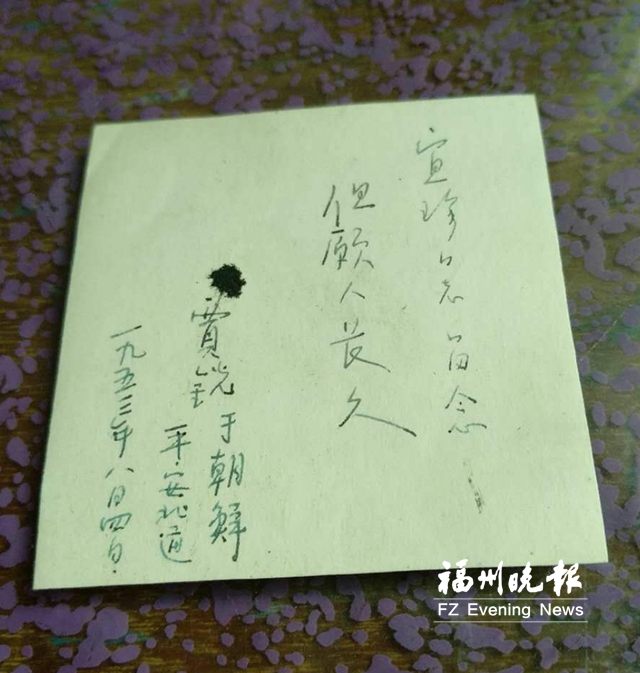 宣珍同志留念
但愿人長久
賈銳于朝鮮
平安北道
一九五三年八月四日.
福州晚报
FZ Evening News